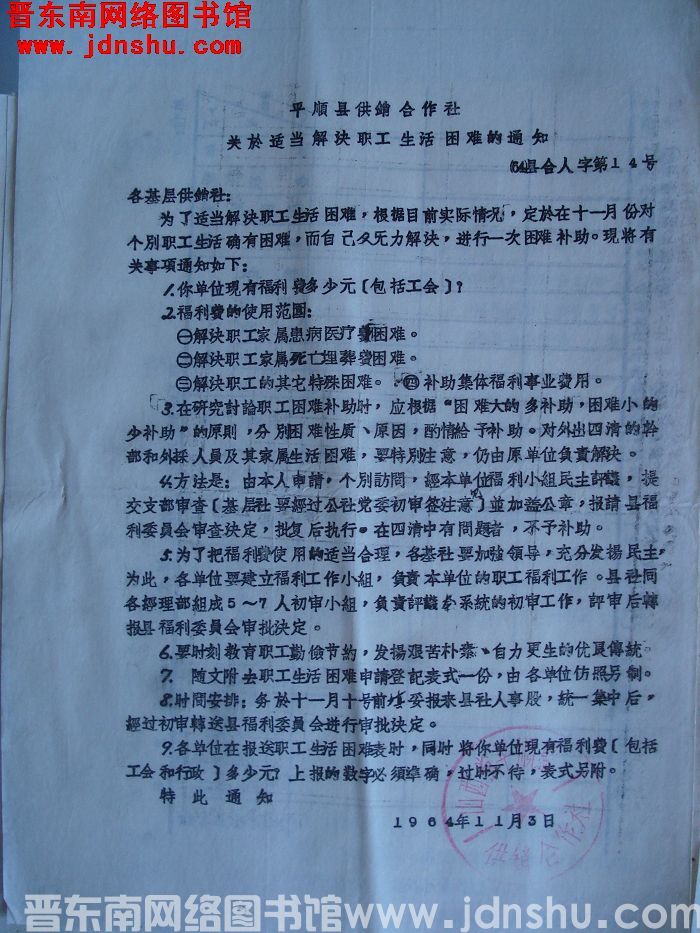 晋东南网络图书馆
www.jdnshu.com
平顺县供銷合作社
关於适当解决职工生活困难的通知
(64)县合人字第14号
各基层供銷社：
为了适当解决职工生活困难，根据目前实际情况，定於在十一月份对
个别职工生活确有困难，而自己又无力解决，进行一次困难补助。现将有
关事项通知如下：
1.你单位现有福利费多少元〔包括工会〕？
2.福利费的使用范围：
㊀解决职工家属患病医疗费困难。
㊁解决职工家属死亡埋葬费困难。
㊂解决职工的其它特殊困难。㊃补助集体福利事业费用。
3.在研究討論职工困难补助时，应根据“困难大的多补助，困难小的
少补助”的原則，分别困难性质、原因，酌情給予补助。对外出四清的幹
部和外採人员及其家属生活困难，要特别注意，仍由原单位負責解决。
4.方法是：由本人申請，个别訪問，經本单位福利小組民主評議，提
交支部审查〔基层社要經过公社党委初审签注意〕並加盖公章，报請县福
利委员会审查决定，批复后执行。在四清中有問题者，不予补助。
5.为了把福利费使用的适当合理，各基社要加強领导，充分发揚民主，
为此，各单位要建立福利工作小組，負責本单位的职工福利工作。县社同
各經理部組成5～7人初审小組，負責評議本系統的初审工作，評审后轉
报县福利委员会审批决定。
6.要时刻教育职工勤儉节約，发揚艰苦朴素、自力更生的优良傳統。
7.随文附去职工生活困难申請登記表式一份，由各单位仿照另制。
8.时間安排：务於十一月十号前填妥报来县社人事股，統一集中后，
經过初审轉送县福利委员会进行审批决定。
9.各单位在报送职工生活困难表时，同时将你单位现有福利费〔包括
工会和行政〕多少元？上报的数字必須準确，过时不待，表式另附。
特此通知
1964年11月3日
供銷合作社
晋东南网络图书馆 www.jdnshu.com